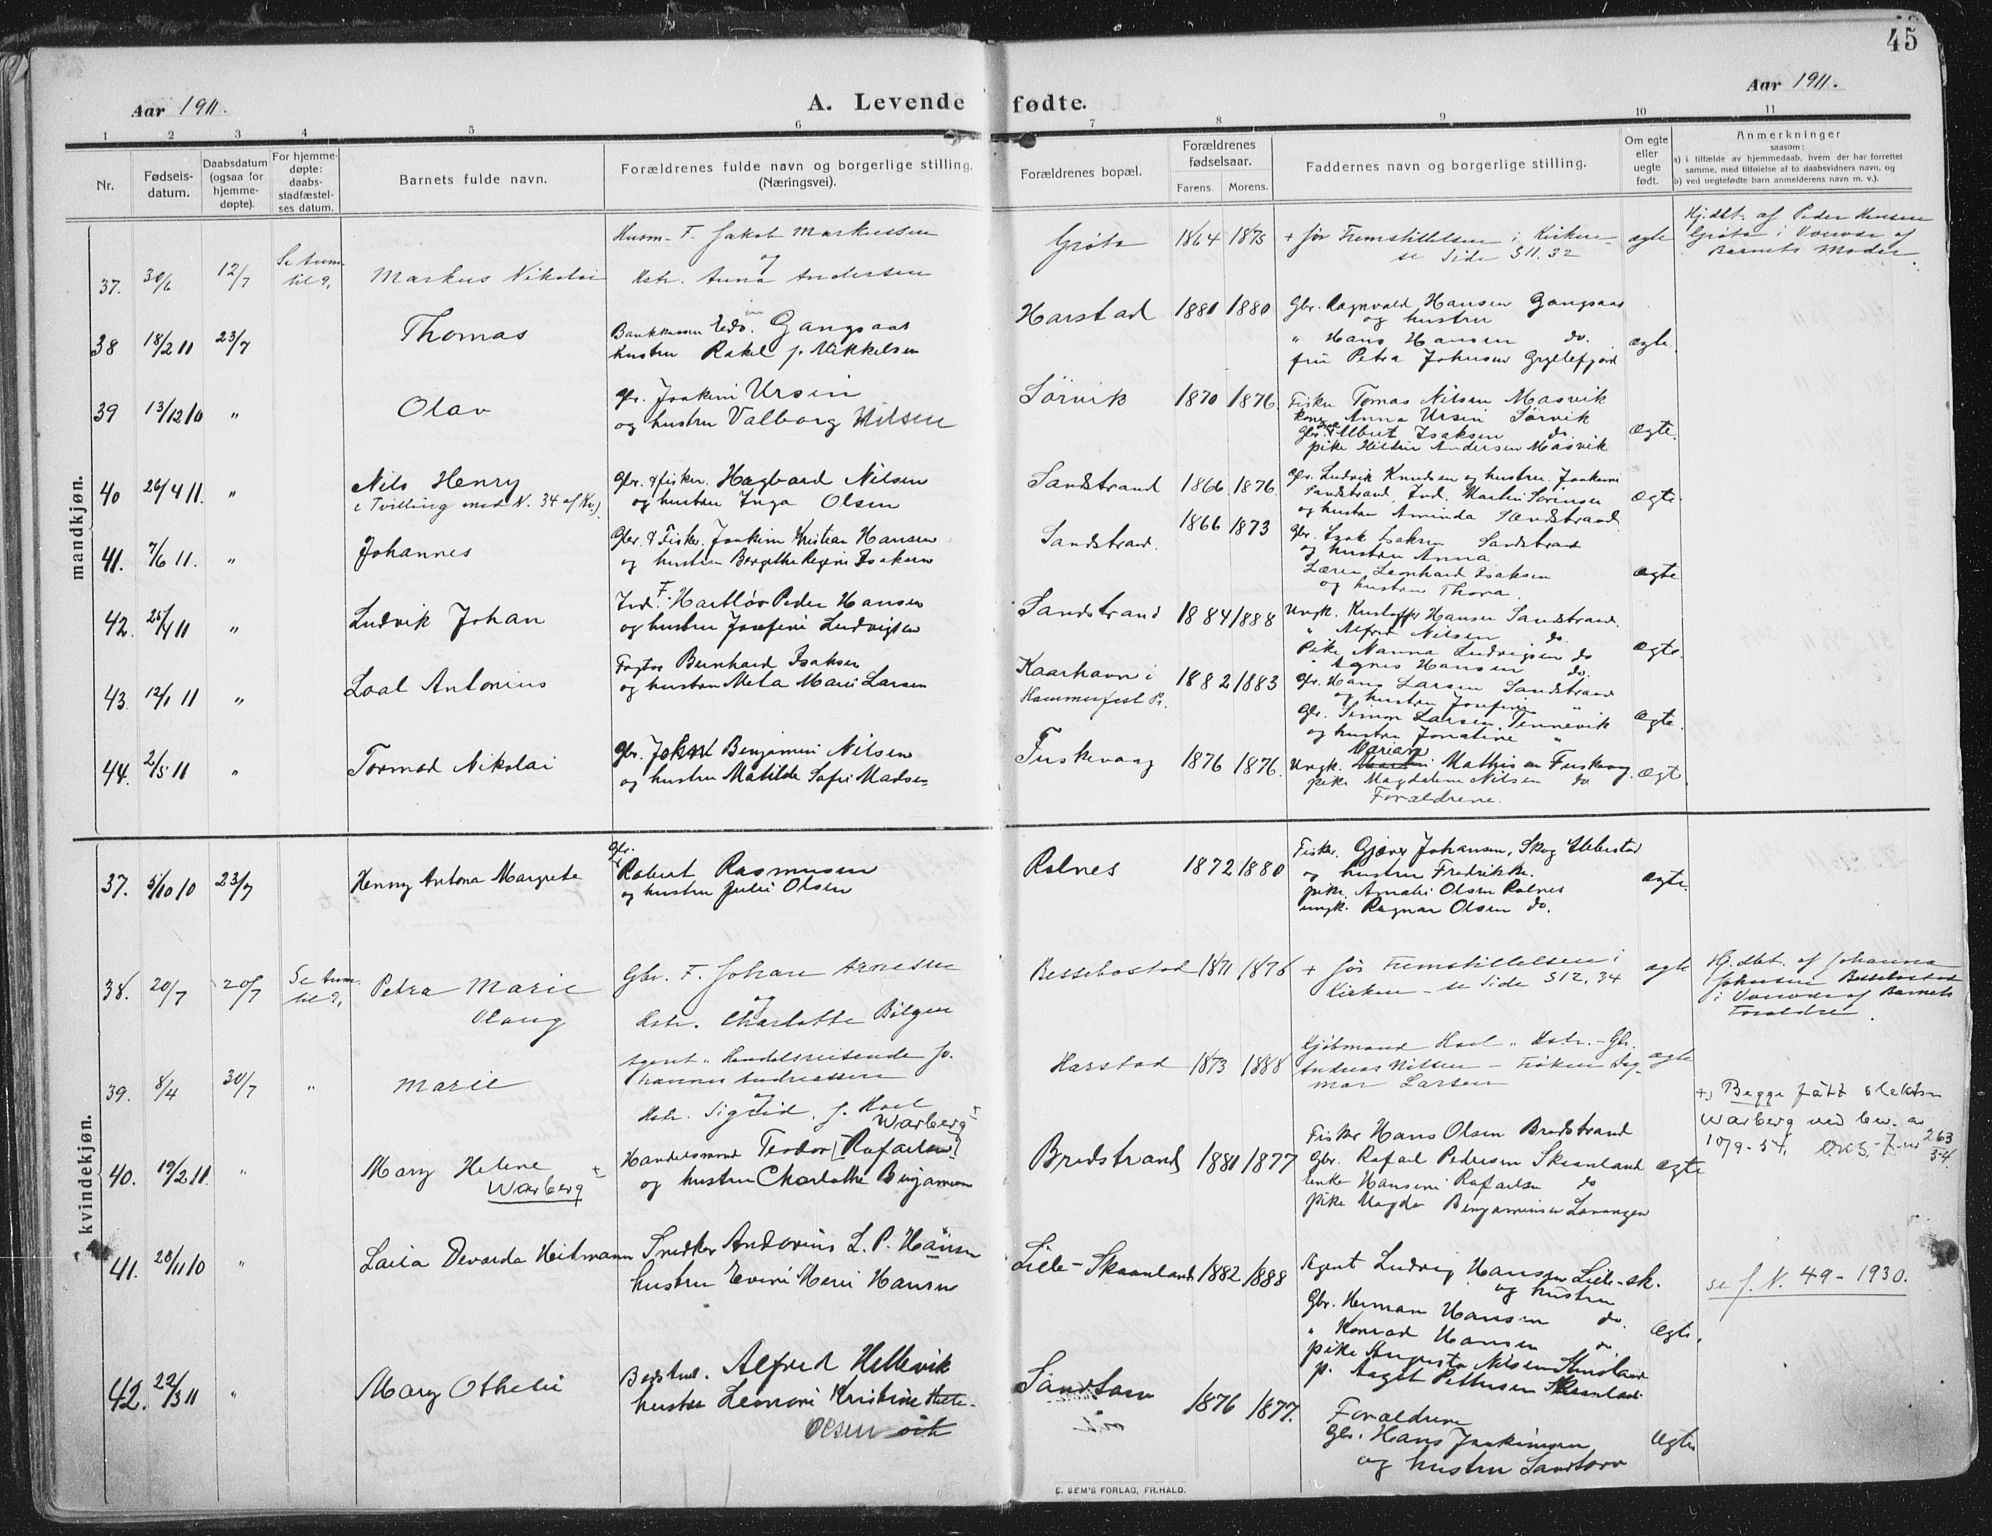 45
Aar 1911.
A. Levende fødte.
Aar 1911.
1 2 3 4 5 6 7 8 9 10 11
Nr.
Fødsels-
datum.
Daabsdatum
(ogsaa for
hjemme-
døpte).
For hjemme-
døpte:
daabs-
stadfæstel-
ses datum.
Barnets fulde navn.
Forældrenes fulde navn og borgerlige stilling.
(Næringsvei).
Forældrenes bopæl.
Forældrenes
fødselsaar.
Farens. Morens.
Faddernes navn og borgerlige stilling.
Om egte
eller
uegte
født.
Anmerkninger
saasom:
a) i tilfælde av hjemmedaab, hvem der har forrettet
samme, med tilføielse af to daabsvidners navn, og
b) ved uegtefødte barn anmelderens navn m. v.).
mandkjøn.
37. 30/6 12/7 Se Anm. til 9. Markus Nikolai
Husm. F. Jakob Markussen
og
Hstr. Anna Andersen
Grøta 1864 1875
+ før Fremstillelsen i Kirken
se Side S11. 32
egte
Hj.dbt. af Peder Hansen
Grøta i Nærvær af
Barnets Moder.
38 18/2 11 23/7 Thomas
Eds. Gangsaas
hustru Rakel f. Mikkelsen
Harstad 1881 1880
Gbr. Ragnvald Hansen Gangsaas
og hustru
" Hans Hansen do.
fru Petra Johnsen Gryllefjord
egte.
39 13/12 10 " Olav
Gbr. Joakim Ursin
og hustru Valborg Nilsen
Sørvik 1870 1876.
Fisker Tomas Nilsen Masvik
kone Anna Ursin Sørvik
Gbr. Albert Isaksen do.
pike Hilda Andersen Masvik
Ægte.
40 26/4 11. " Nils Henry
(Tvilling med N. 34 af Kv.)
Gbr. & fisker. Hagbard Nilsen
og hustru Inga Olsen
Sandstrand 1866 1876.
Gbr. Ludvik Knudsen og hustru Joakime
Sandstrand, Ind. Martin Sørensen
og hustru Aminda Sandstrand
Ægte.
41. 7/6 11. " Johannes
Gbr. & Fisker. Joakim Kristian Hansen
og hustru Bergithe Regine Isaksen
Sandstrand. 1866 1873
Gbr. Isak Isaksen Sandstrand
og hustru Anna
Lærer Leonhard Isaksen
og hustru Thora.
Ægte
42. 25/4 11 " Ludvik Johan
Ind. F. Hartløv Peder Hansen
og hustru Josefine Ludvigsen
Sandstrand 1884 1888
Ungk. Kristoffer Hansen Sandstrand.
" Alfred Nilsen do.
Pike Nanna Ludvigsen do
" Agnes Hansen do.
Ægte.
43. 12/1 11 " Loal Antonius
Bernhard Isaksen
og hustru Meta Marie Larsen
Kaarhavn i
Hammerfest Pr.
1882 1883
Gbr. Hans Larsen Sandstrand
og hustru Josefine "
Gbr. Simon Larsen, Tennevik
og hustru Jonatine "
Ægte.
44. 2/5 11 " Tormod Nikolai
Gbr. Johan Benjamin Nilsen
og hustru Matilde Sofie Madsen
Fuskevaag 1876 1876.
Ungk. Mathisen Fuskevaag.
pike Magdalene Nilsen do
Forældrene.
Ægte
kvindekjøn.
37. 5/10 10 23/7 Henny Antona Margrete
Gbr.
Robert Rasmussen
og hustru Julie Olsen
Rolnes 1872 1880
Fisker. Gjerer Johansen, Skog Ibbestad
og hustru Fredrikke.
pike. Amalie Olsen Rolnes
ungk. Ragnar Olsen do.
Ægte.
38. 20/7 20/7 Se Anm. til 9. Petra Marie
Olaug
Gbr. F. Johan Arnesen
og
Hstr. Charlotte Bølgen
Bessebostad 1871 1876
+ før Fremstillelsen i
Kirken - se Side S12, 34
egte
Hj.dbt. af Johanna
Johnsen Bessebostad
i Nærvær af Barnets
Forældre.
39. 8/4 30/7 " Marie
Agent, Handelsreisende Jo-
hannes Andreassen
og
Hstr. Sigrid, f. Hoel
Harstad 1873 1888
Kjøbmand Hoel, Hstr. - Gbr.
Andreas Nilsen - Frøken Dag-
mar Larsen
egte
40. 19/2 11. " Mary Helene +
Warberg
Warberg +
Handelsmand Teodor [Rafaelsen]
og hustru Charlotte Benjaminsen
Bredstrand 1881 1877
Fisker Hans Olsen Bredstrand
Gbr. Rafael Pedersen Skaanland
enke Hansine Rafaelsen do
pike Magda Benjaminsen Lavangen
egte
+) Begge fått slektsn
Warberg ved bev. av
10/9-54. 263
54.
41. 28/11 10 " Laila Devarda Heitmann
Snedker Andorius L. P. Hansen
hustru Evine Marie Hansen
Lille-Skaanland 1882 1888
Agent Ludvig Hansen Lille-sk.
og hustru
Gbr. Herman Hansen do.
" Konrad Hansen do.
pike Augusta Nilsen
p. Aagot Pettersen Skaanland.
Ægte.
se f. N. 49 - 1930.
42. 22/3 11 " Mary Othelie
Alfred Hellevik
hustru Leonore Kristine Helle-
Olsen vik
Sandtorv 1876 1877.
Forældrene
Gbr. Hans Joakimsen
og hustru Sandtorv
Ægte
E. SEM'S FORLAG, FR.HALD.